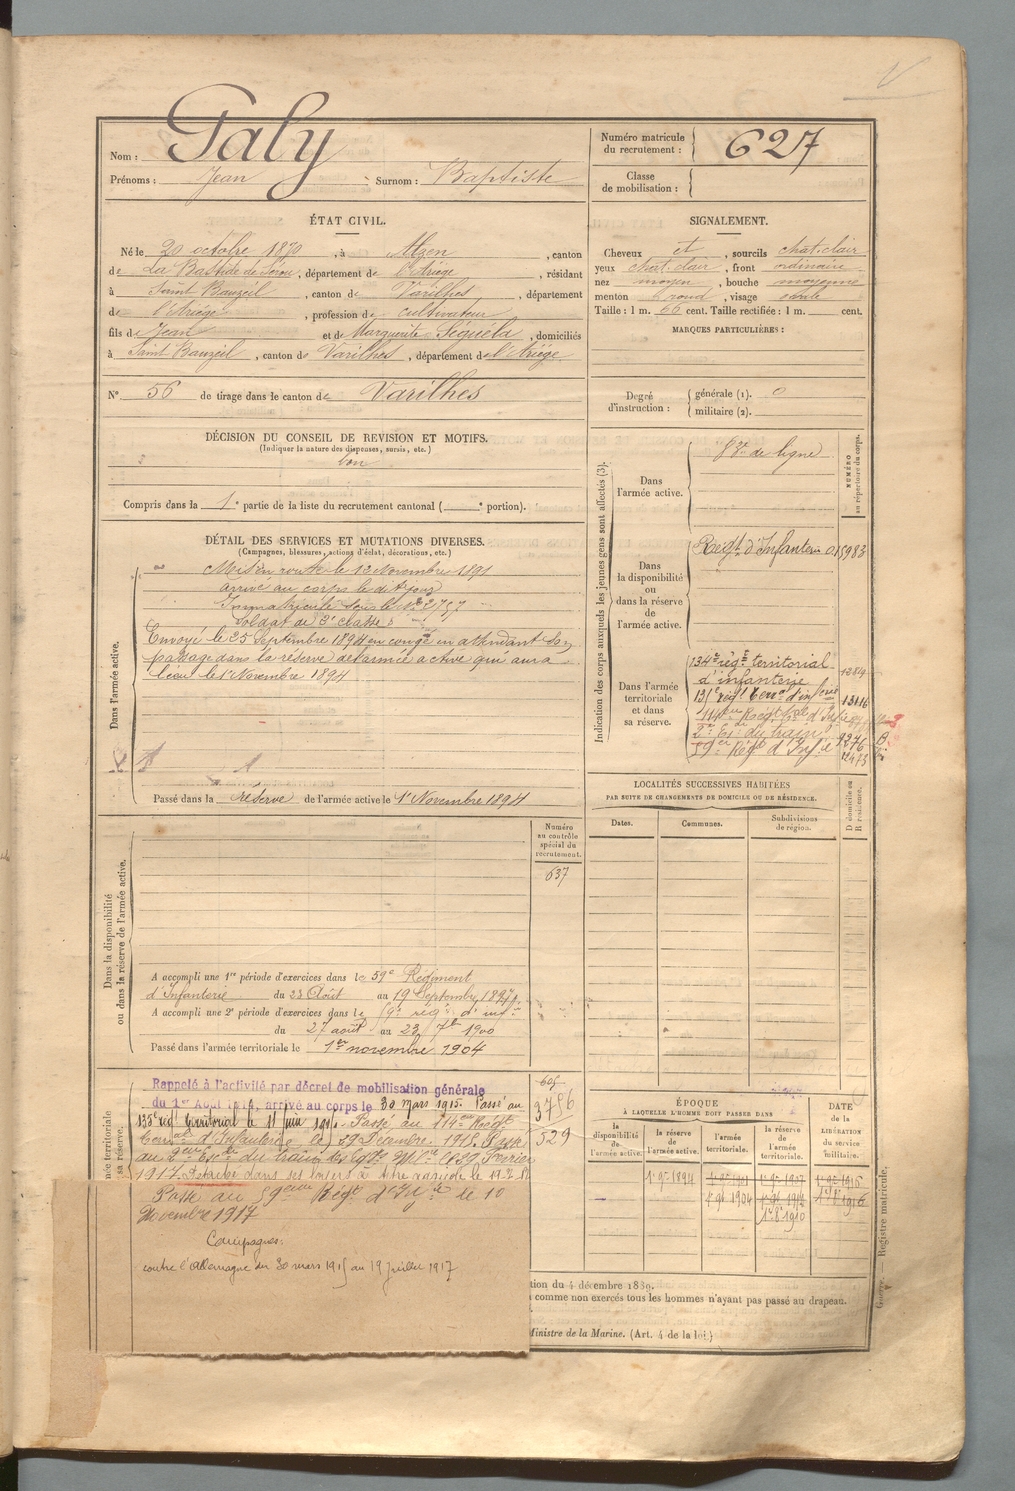 Nom : Galy
Prénoms : Jean Surnom : Baptiste
Numéro matricule du recrutement : 627
Classe de mobilisation :
ÉTAT CIVIL.
Né le 20 octobre 1870, à Alzen, canton
de La Bastide de Sérou, département de l'Ariège, résidant
à Saint Bauzeil, canton de Varilhes, département
de l'Ariège, profession de cultivateur
fils de Jean et de Marguerite Séguéla, domiciliés
à Saint Bauzeil, canton de Varilhes, département de l'Ariège
SIGNALEMENT.
Cheveux et, sourcils chat. clair
yeux chat. clair, front ordinaire
nez moyen, bouche moyenne
menton rond, visage ovale
Taille : 1 m. 66 cent. Taille rectifiée : 1 m. cent.
MARQUES PARTICULIÈRES :
N° 56 de tirage dans le canton de Varilhes
Degré d'instruction : générale (1). 0
militaire (2).
DÉCISION DU CONSEIL DE REVISION ET MOTIFS.
(Indiquer la nature des dispenses, sursis, etc.)
bon
Compris dans la 1e partie de la liste du recrutement cantonal ( e portion).
DÉTAIL DES SERVICES ET MUTATIONS DIVERSES.
(Campagnes, blessures, actions d'éclat, décorations, etc.)
Dans l'armée active.
Mis en route le 12 Novembre 1891
arrivé au corps le dit jour
Immatriculé sous le N° 2757
Soldat de 2e classe
Envoyé le 25 Septembre 1894 en congé en attendant son
passage dans la réserve de l'armée active qui aura
lieu le 1er Novembre 1894
Passé dans la réserve de l'armée active le 1er Novembre 1894
Indication des corps auxquels les jeunes gens sont affectés (3).
NUMÉRO au répertoire du corps.
Dans l'armée active.
de ligne
Dans la disponibilité ou dans la réserve de l'armée active.
Régt d'Infanterie 015983
Dans l'armée territoriale et dans sa réserve.
134e régt territorial
d'infanterie
135e régt terr. d'infrie 13116
114e Régt
2e Esc. du train 9276
59e Régt d'Infie 12473
LOCALITÉS SUCCESSIVES HABITÉES
PAR SUITE DE CHANGEMENTS DE DOMICILE OU DE RÉSIDENCE.
Dates. Communes. Subdivisions de région. D domicile ou R résidence.
Numéro au contrôle spécial du recrutement.
637
Dans la disponibilité ou dans la réserve de l'armée active.
A accompli une 1re période d'exercices dans le 59e Régiment
d'Infanterie du 23 Août au 19 Septembre 1897
A accompli une 2e période d'exercices dans le 59e rég. d'inf.
du 27 août au 23 7bre 1900
Passé dans l'armée territoriale le 1er novembre 1904
Rappelé à l'activité par décret de mobilisation générale
du 1er Août 1914, arrivé au corps le 30 mars 1915. Passé au
135e régt territorial le 11 juin 1915. Passé au 114e Régt
Territ. d'Infanterie le 29 Décembre 1915. Passé
au 2e Esc. du train des Eqges Mres le 29 Février
1917. Détaché dans ses foyers à titre agricole le
Passé au 59eme Régt d'Infie le 10
Novembre 1917
Campagnes:
contre l'Allemagne du 30 mars 1915 au 19 juillet 1917
605
3756
529
ÉPOQUE
À LAQUELLE L'HOMME DOIT PASSER DANS
la disponibilité de l'armée active. la réserve de l'armée active. l'armée territoriale. la réserve de l'armée territoriale.
DATE de la LIBÉRATION du service militaire.
1er 9bre 1894
1er 9bre 1904
1er 8bre 1910
tion du 4 décembre 1889.
comme non exercés tous les hommes n'ayant pas passé au drapeau.
Ministre de la Marine. (Art. 4 de la loi.)
Guerre. — Registre matricule.